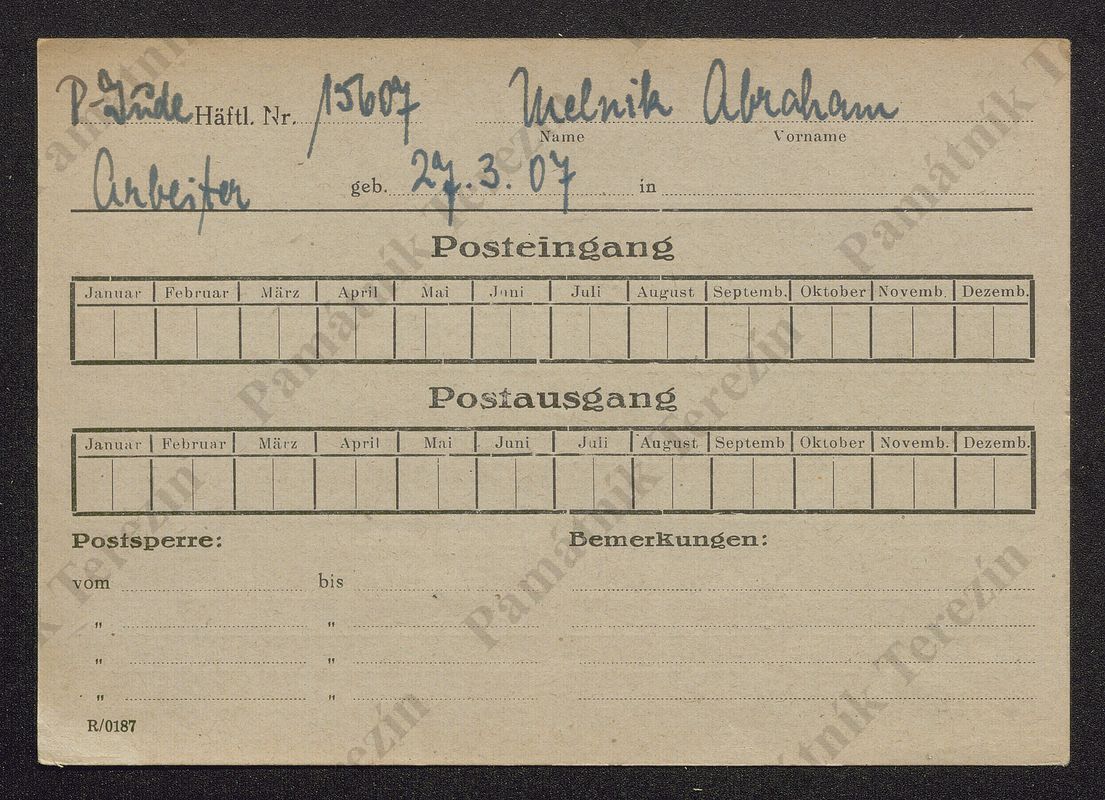 P-Jude Häftl. Nr. 15607 Melnik Abraham
Name Vorname
Arbeiter geb. 27.3.07 in
Posteingang
Januar Februar März April Mai Juni Juli August Septemb. Oktober Novemb. Dezemb.
Postausgang
Januar Februar März April Mai Juni Juli August Septemb Oktober Novemb. Dezemb.
Postsperre: Bemerkungen:
vom bis
" "
" "
" "
R/0187
Památník Terezín